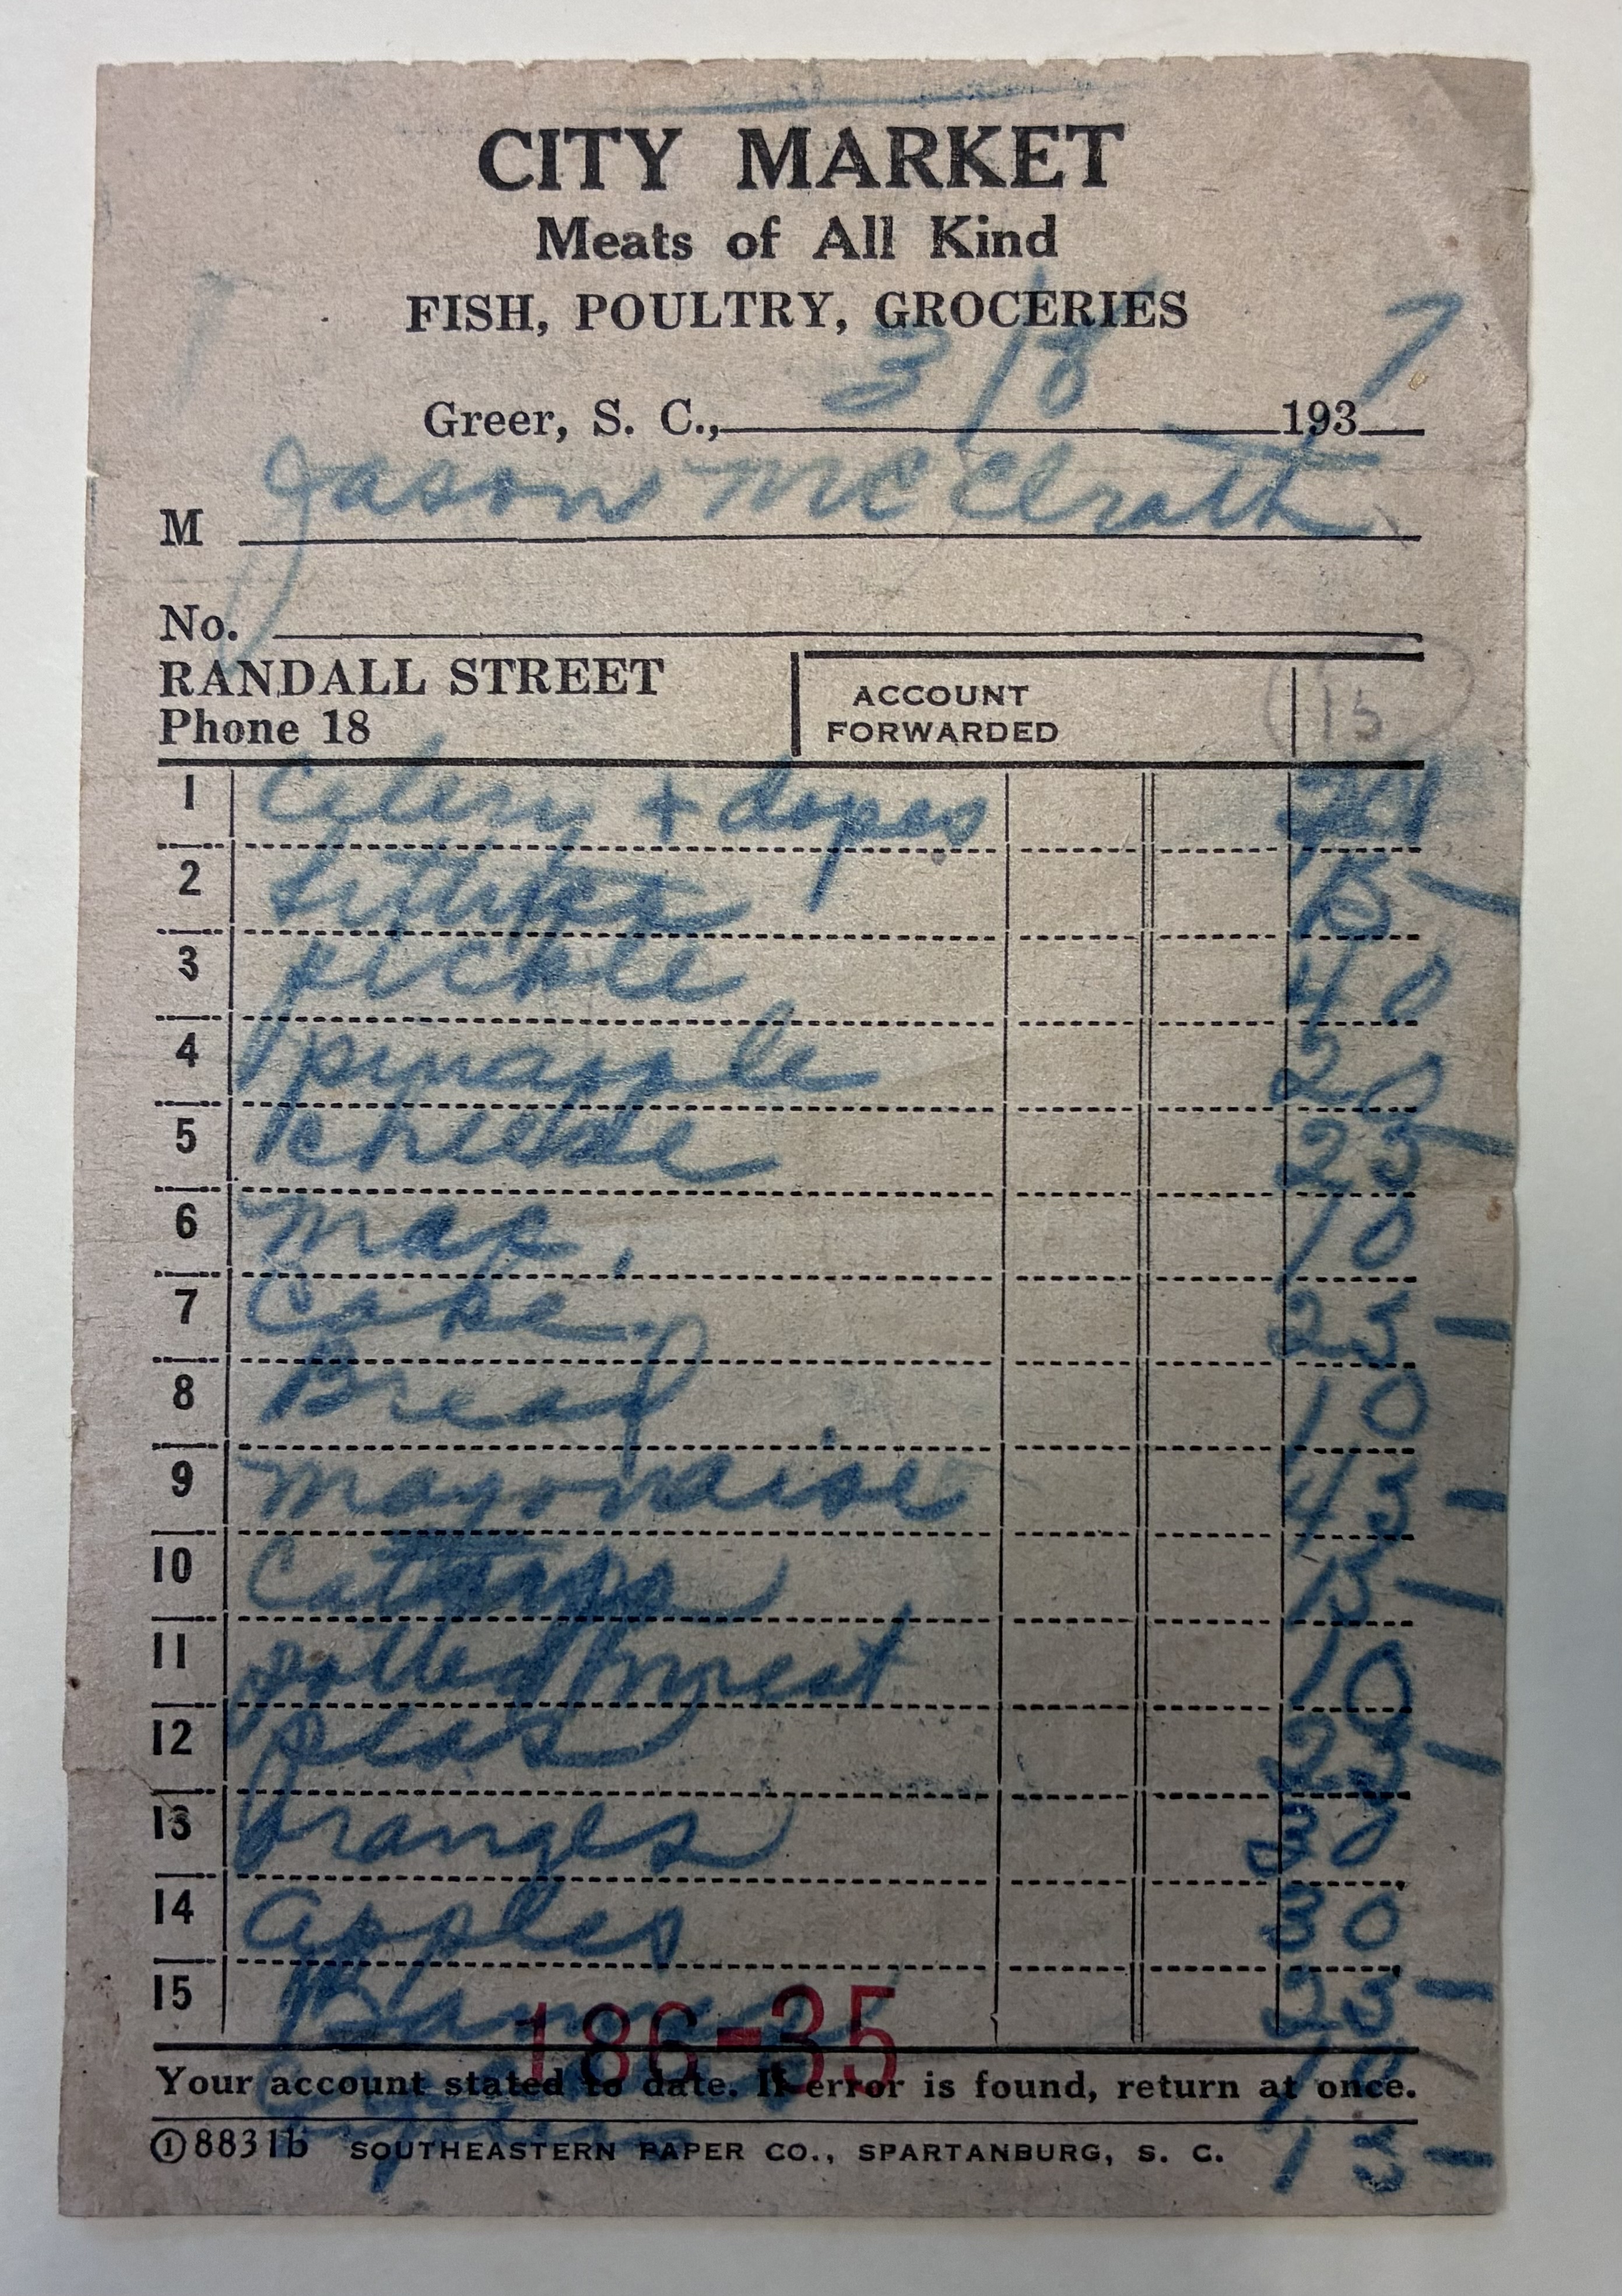 CITY MARKET
Meats of All Kind
FISH, POULTRY, GROCERIES
Greer, S. C., 3/8 1937
M Jason McElrath
No.
RANDALL STREET
Phone 18
ACCOUNT
FORWARDED
15
1 Celery + dopes
2 15
3 pickle 40
4 pinapple 20
5 cheese 25
6 10
7 Cake 25
8 Bread 10
9 mayonaise 45
10 15
11 potted meat 10
12 peas 25
13 oranges 30
14 apples 30
15 25
186-35
Your account stated to date. If error is found, return at once.
10
①8831b SOUTHEASTERN PAPER CO., SPARTANBURG, S. C.
15